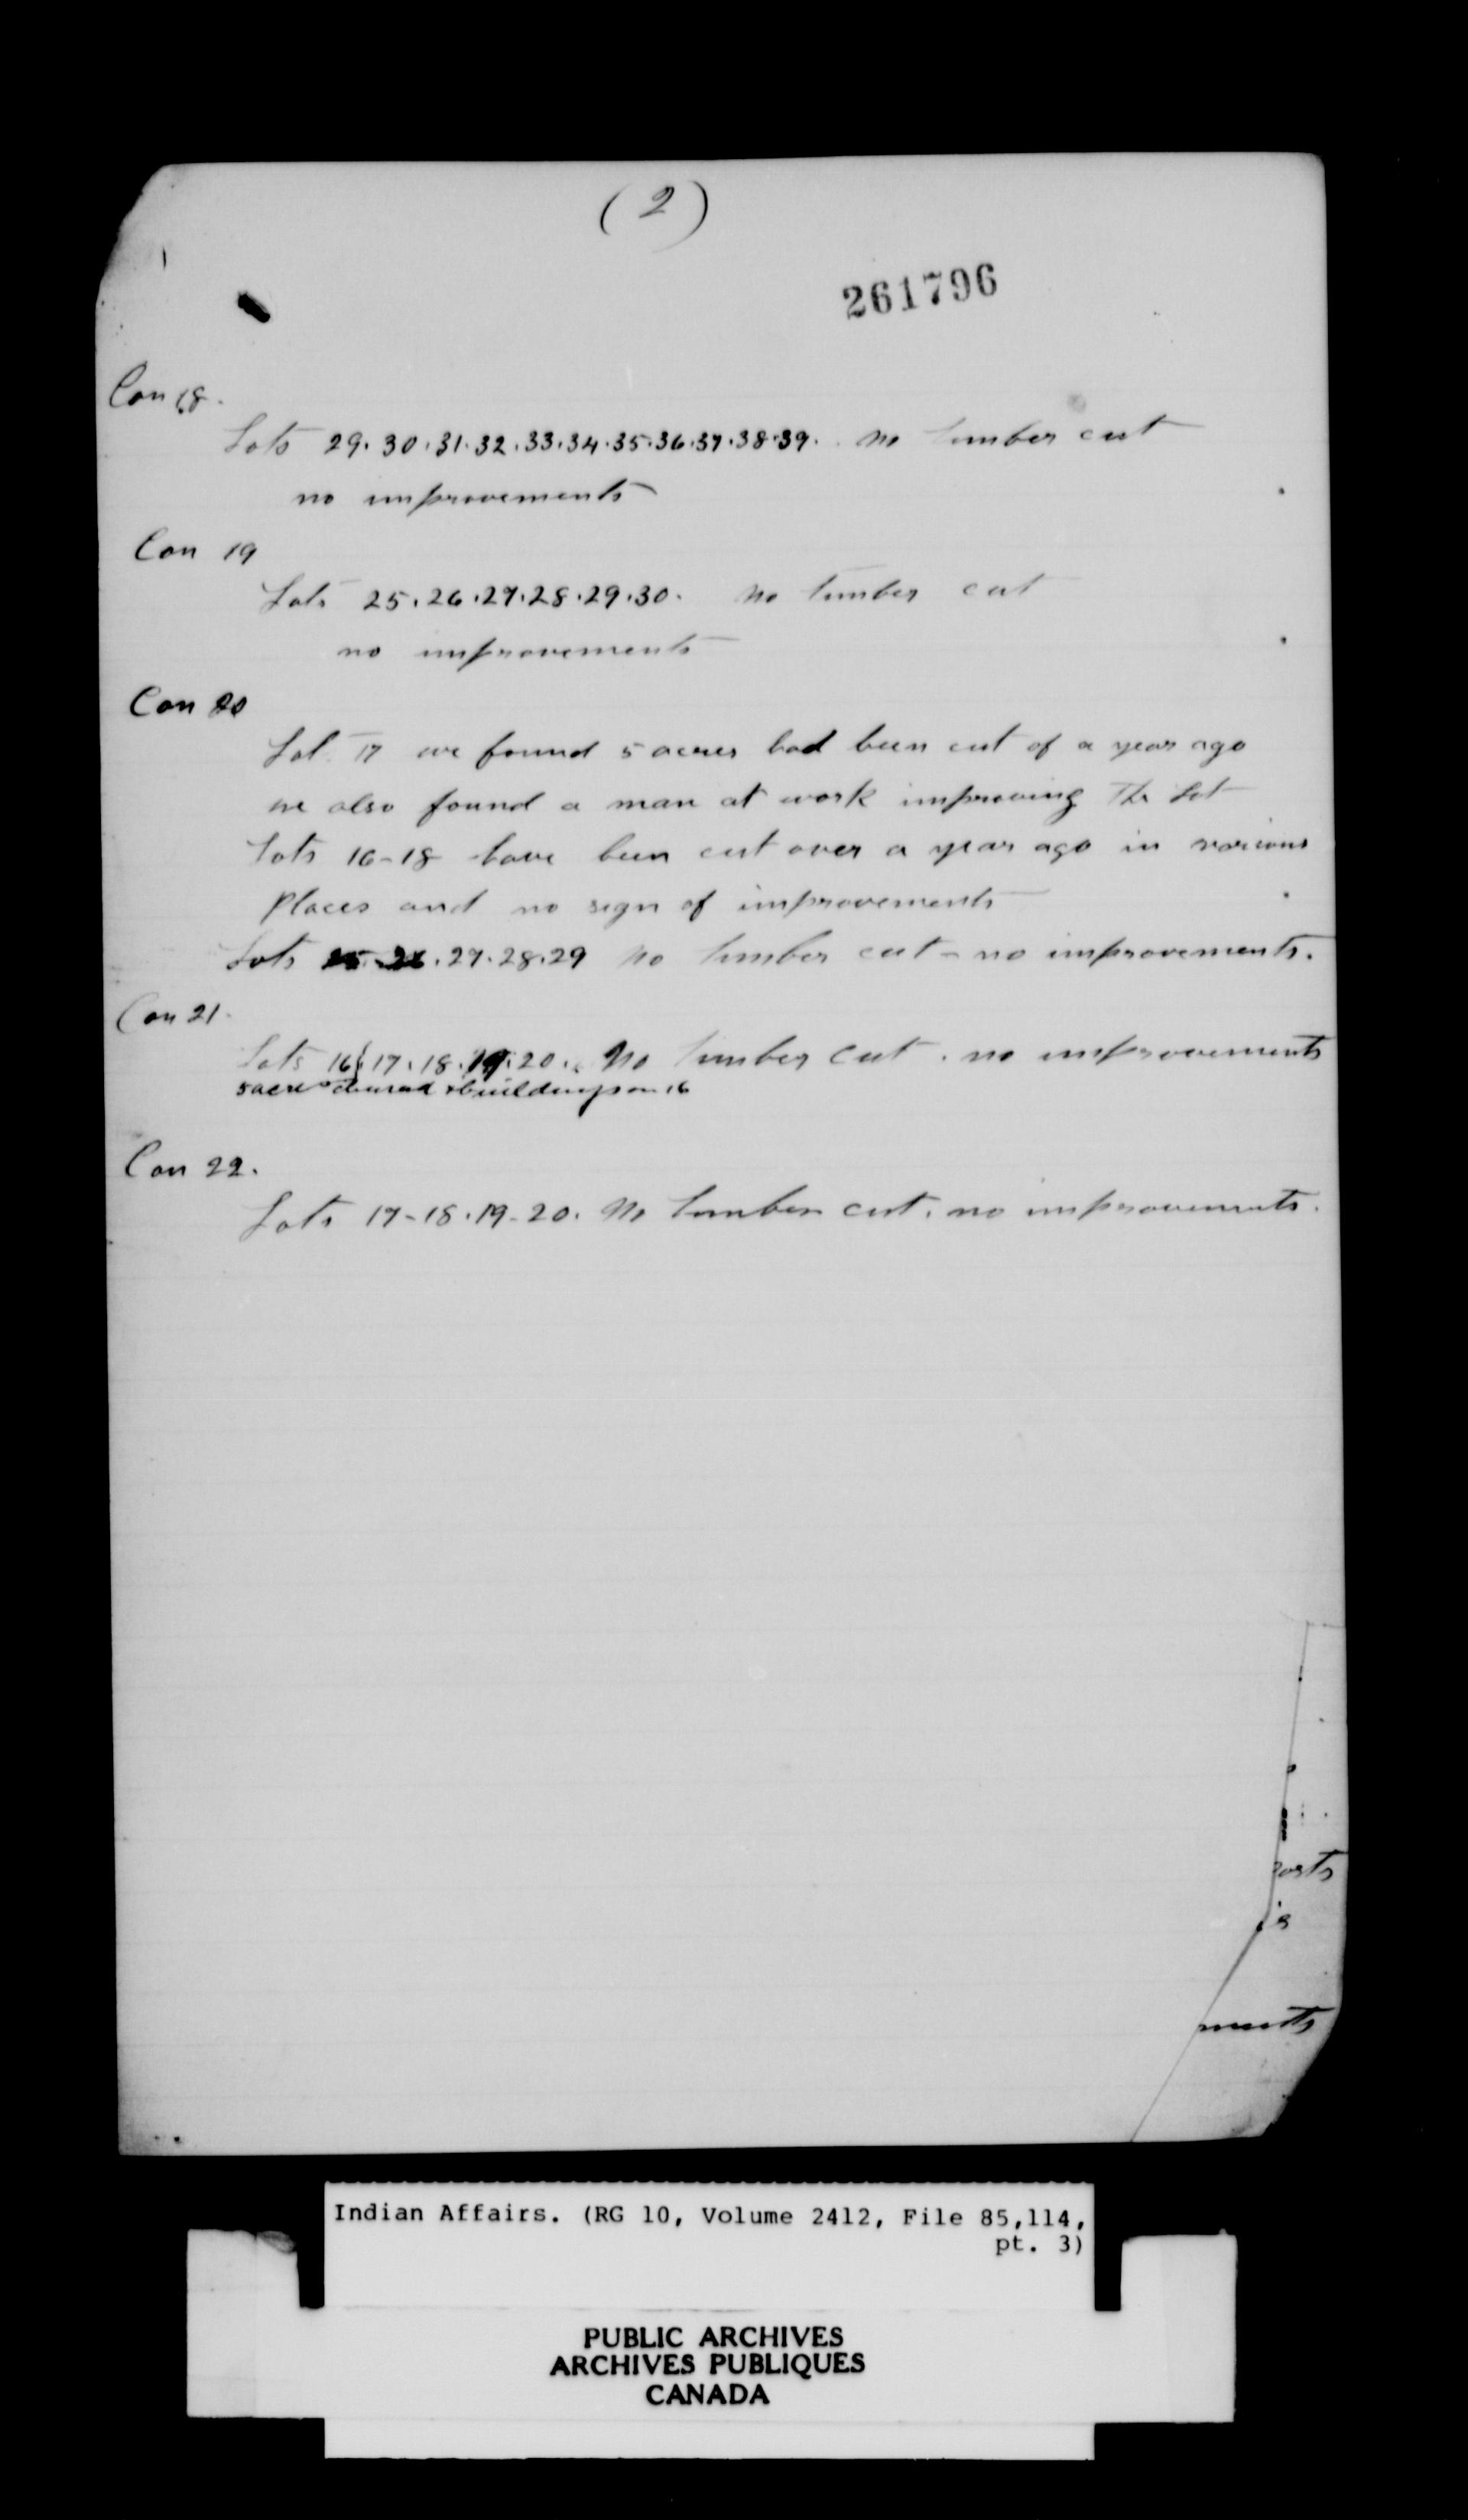 (2)
261796
Con 18.
Lots 29.30.31.32.33.34.35.36.37.38.39. no timber cut
no improvements
Con 19
Lots 25.26.27.28.29.30. no timber cut
no improvements
Con 20
Lot 17 we found 5 acres had been cut of a year ago
we also found a man at work improving the Lot
Lots 16-18 have been cut over a year ago in various
places and no sign of improvements
Lots 25.26.27.28.29 no timber cut - no improvements.
Con 21.
Lots 16.17.18.19.20. no timber cut. no improvements
5 acres cleared & buildings on 16
Con 22.
Lots 17-18.19-20. no timber cut. no improvements.
is
ments
Indian Affairs. (RG 10, Volume 2412, File 85,114,
pt. 3)
PUBLIC ARCHIVES
ARCHIVES PUBLIQUES
CANADA